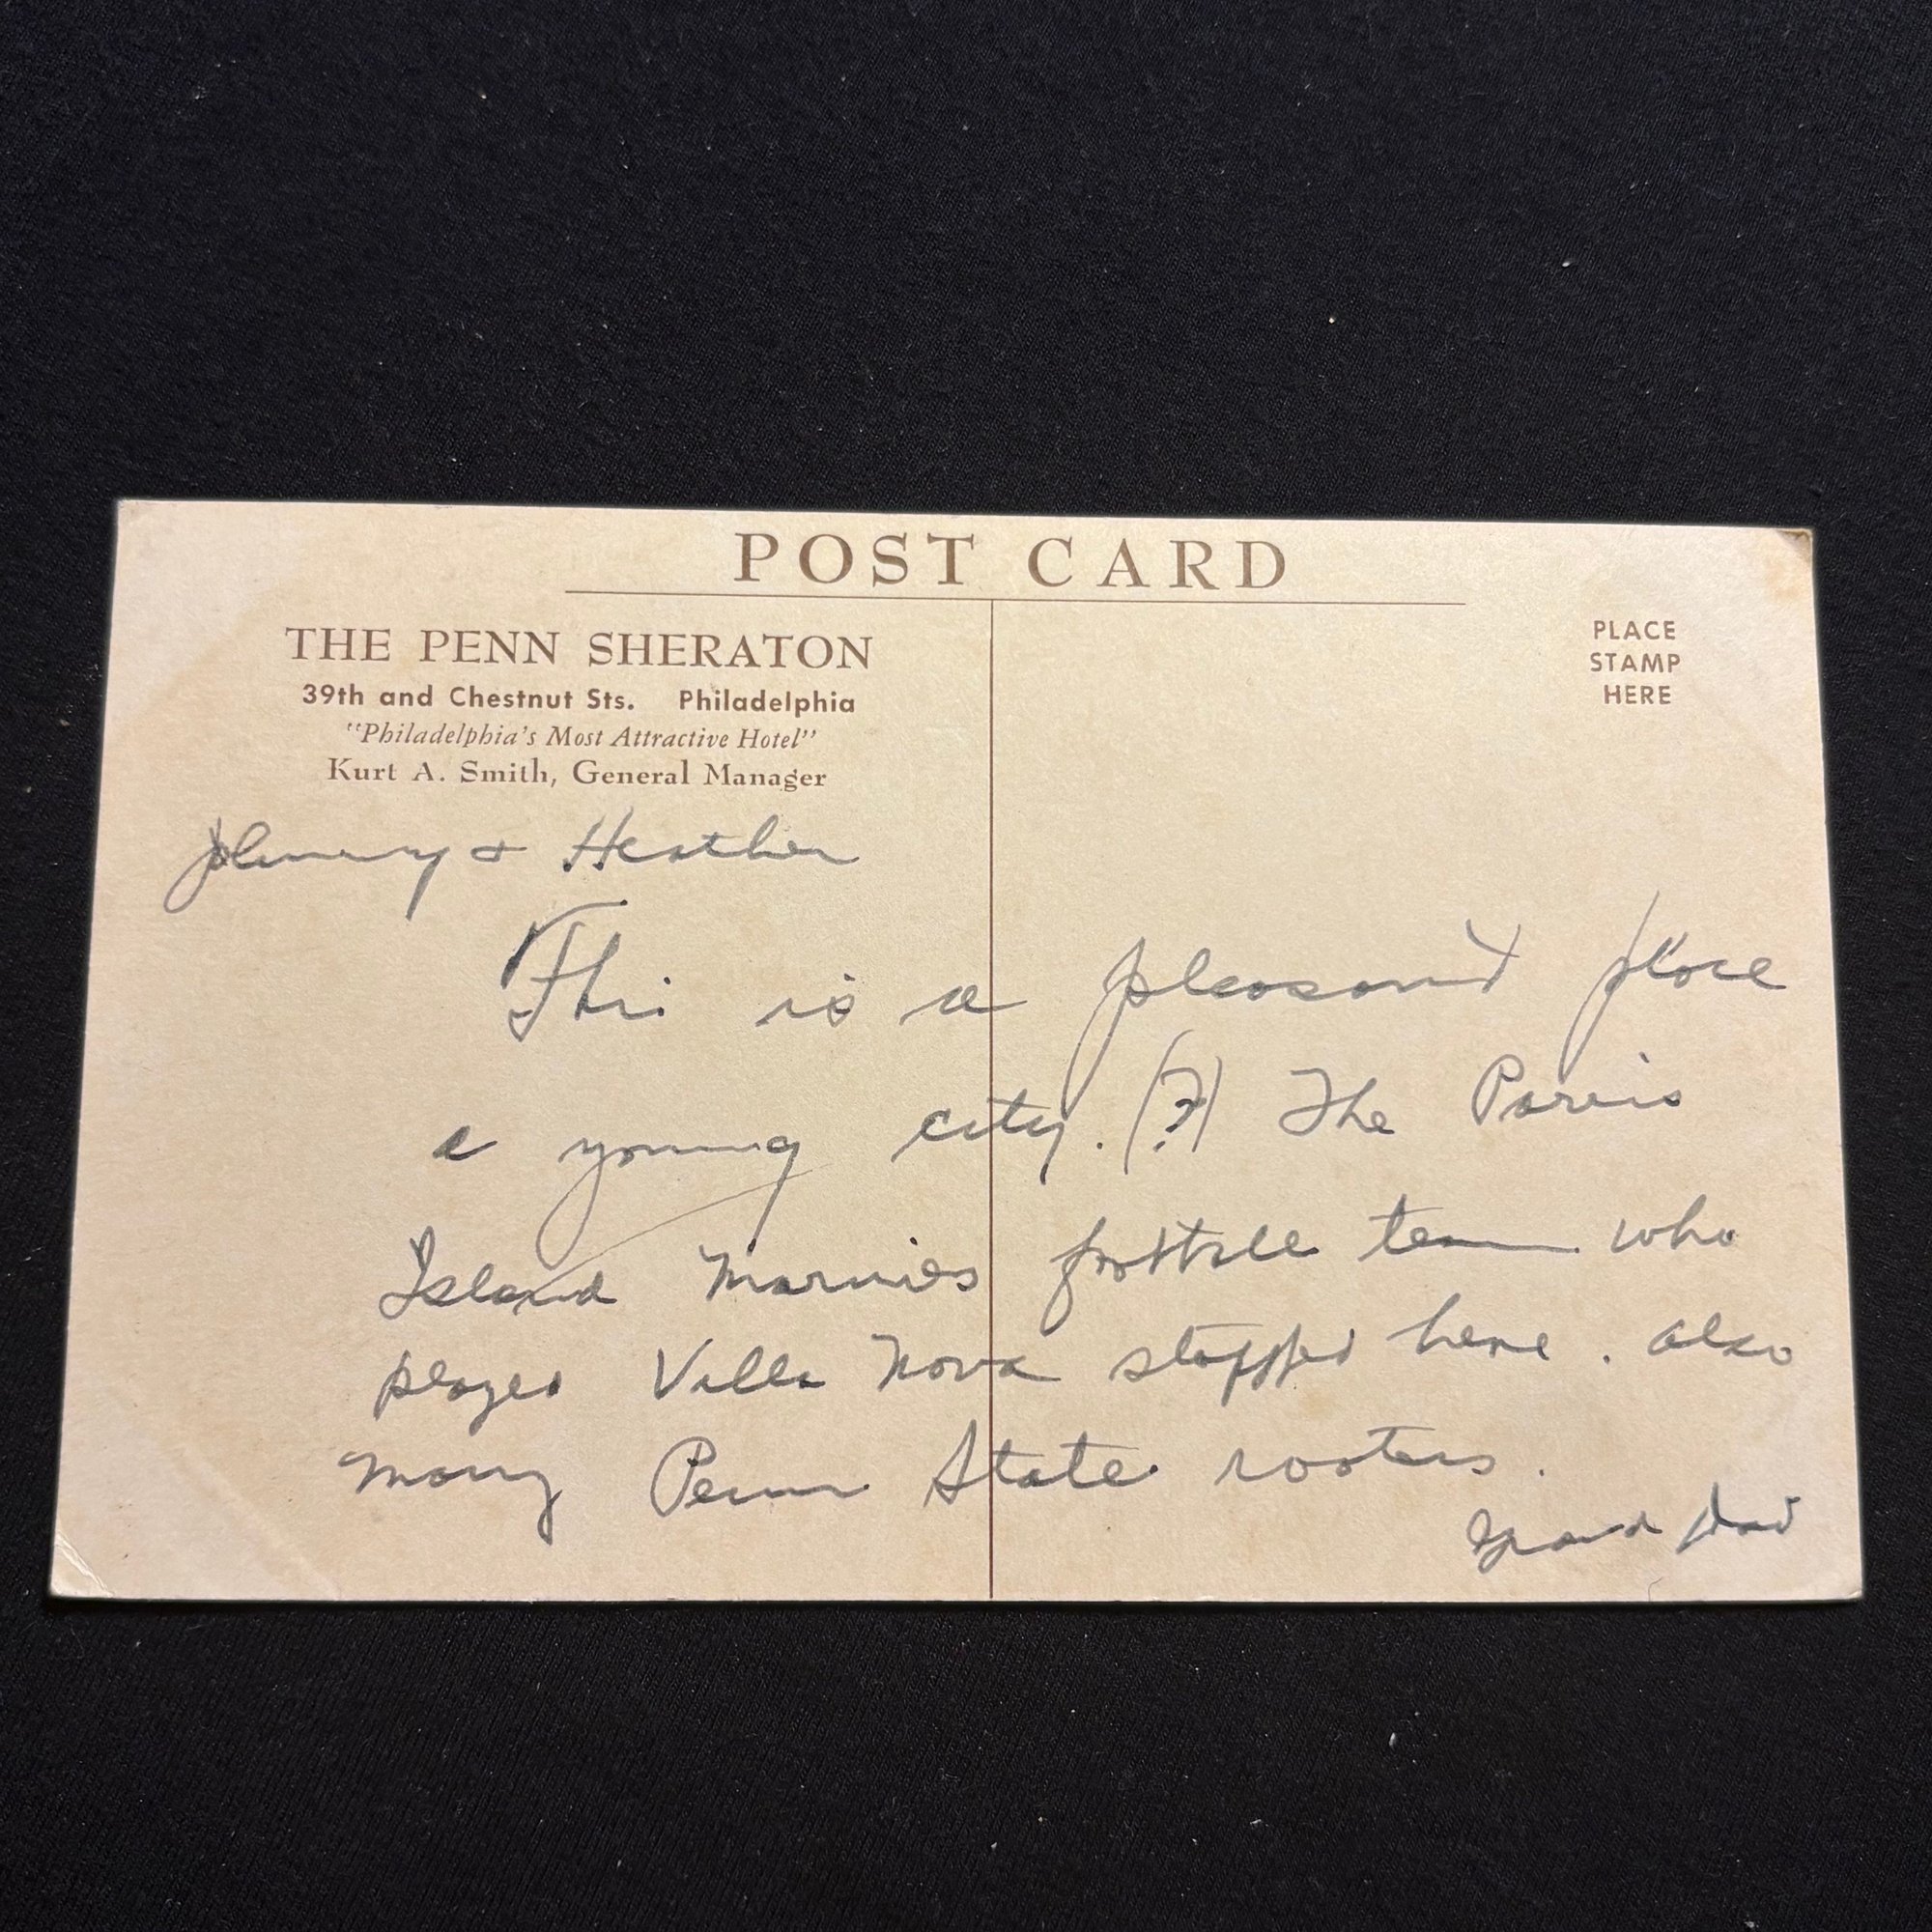 POST CARD
THE PENN SHERATON
39th and Chestnut Sts. Philadelphia
"Philadelphia's Most Attractive Hotel"
Kurt A. Smith, General Manager
PLACE
STAMP
HERE
Johnny & Heather
This is a pleasant place
a young city. (?) The Parris
Island Marines football team who
played Villa Nova stopped here. also
many Penn State rooters.
Grand Dad